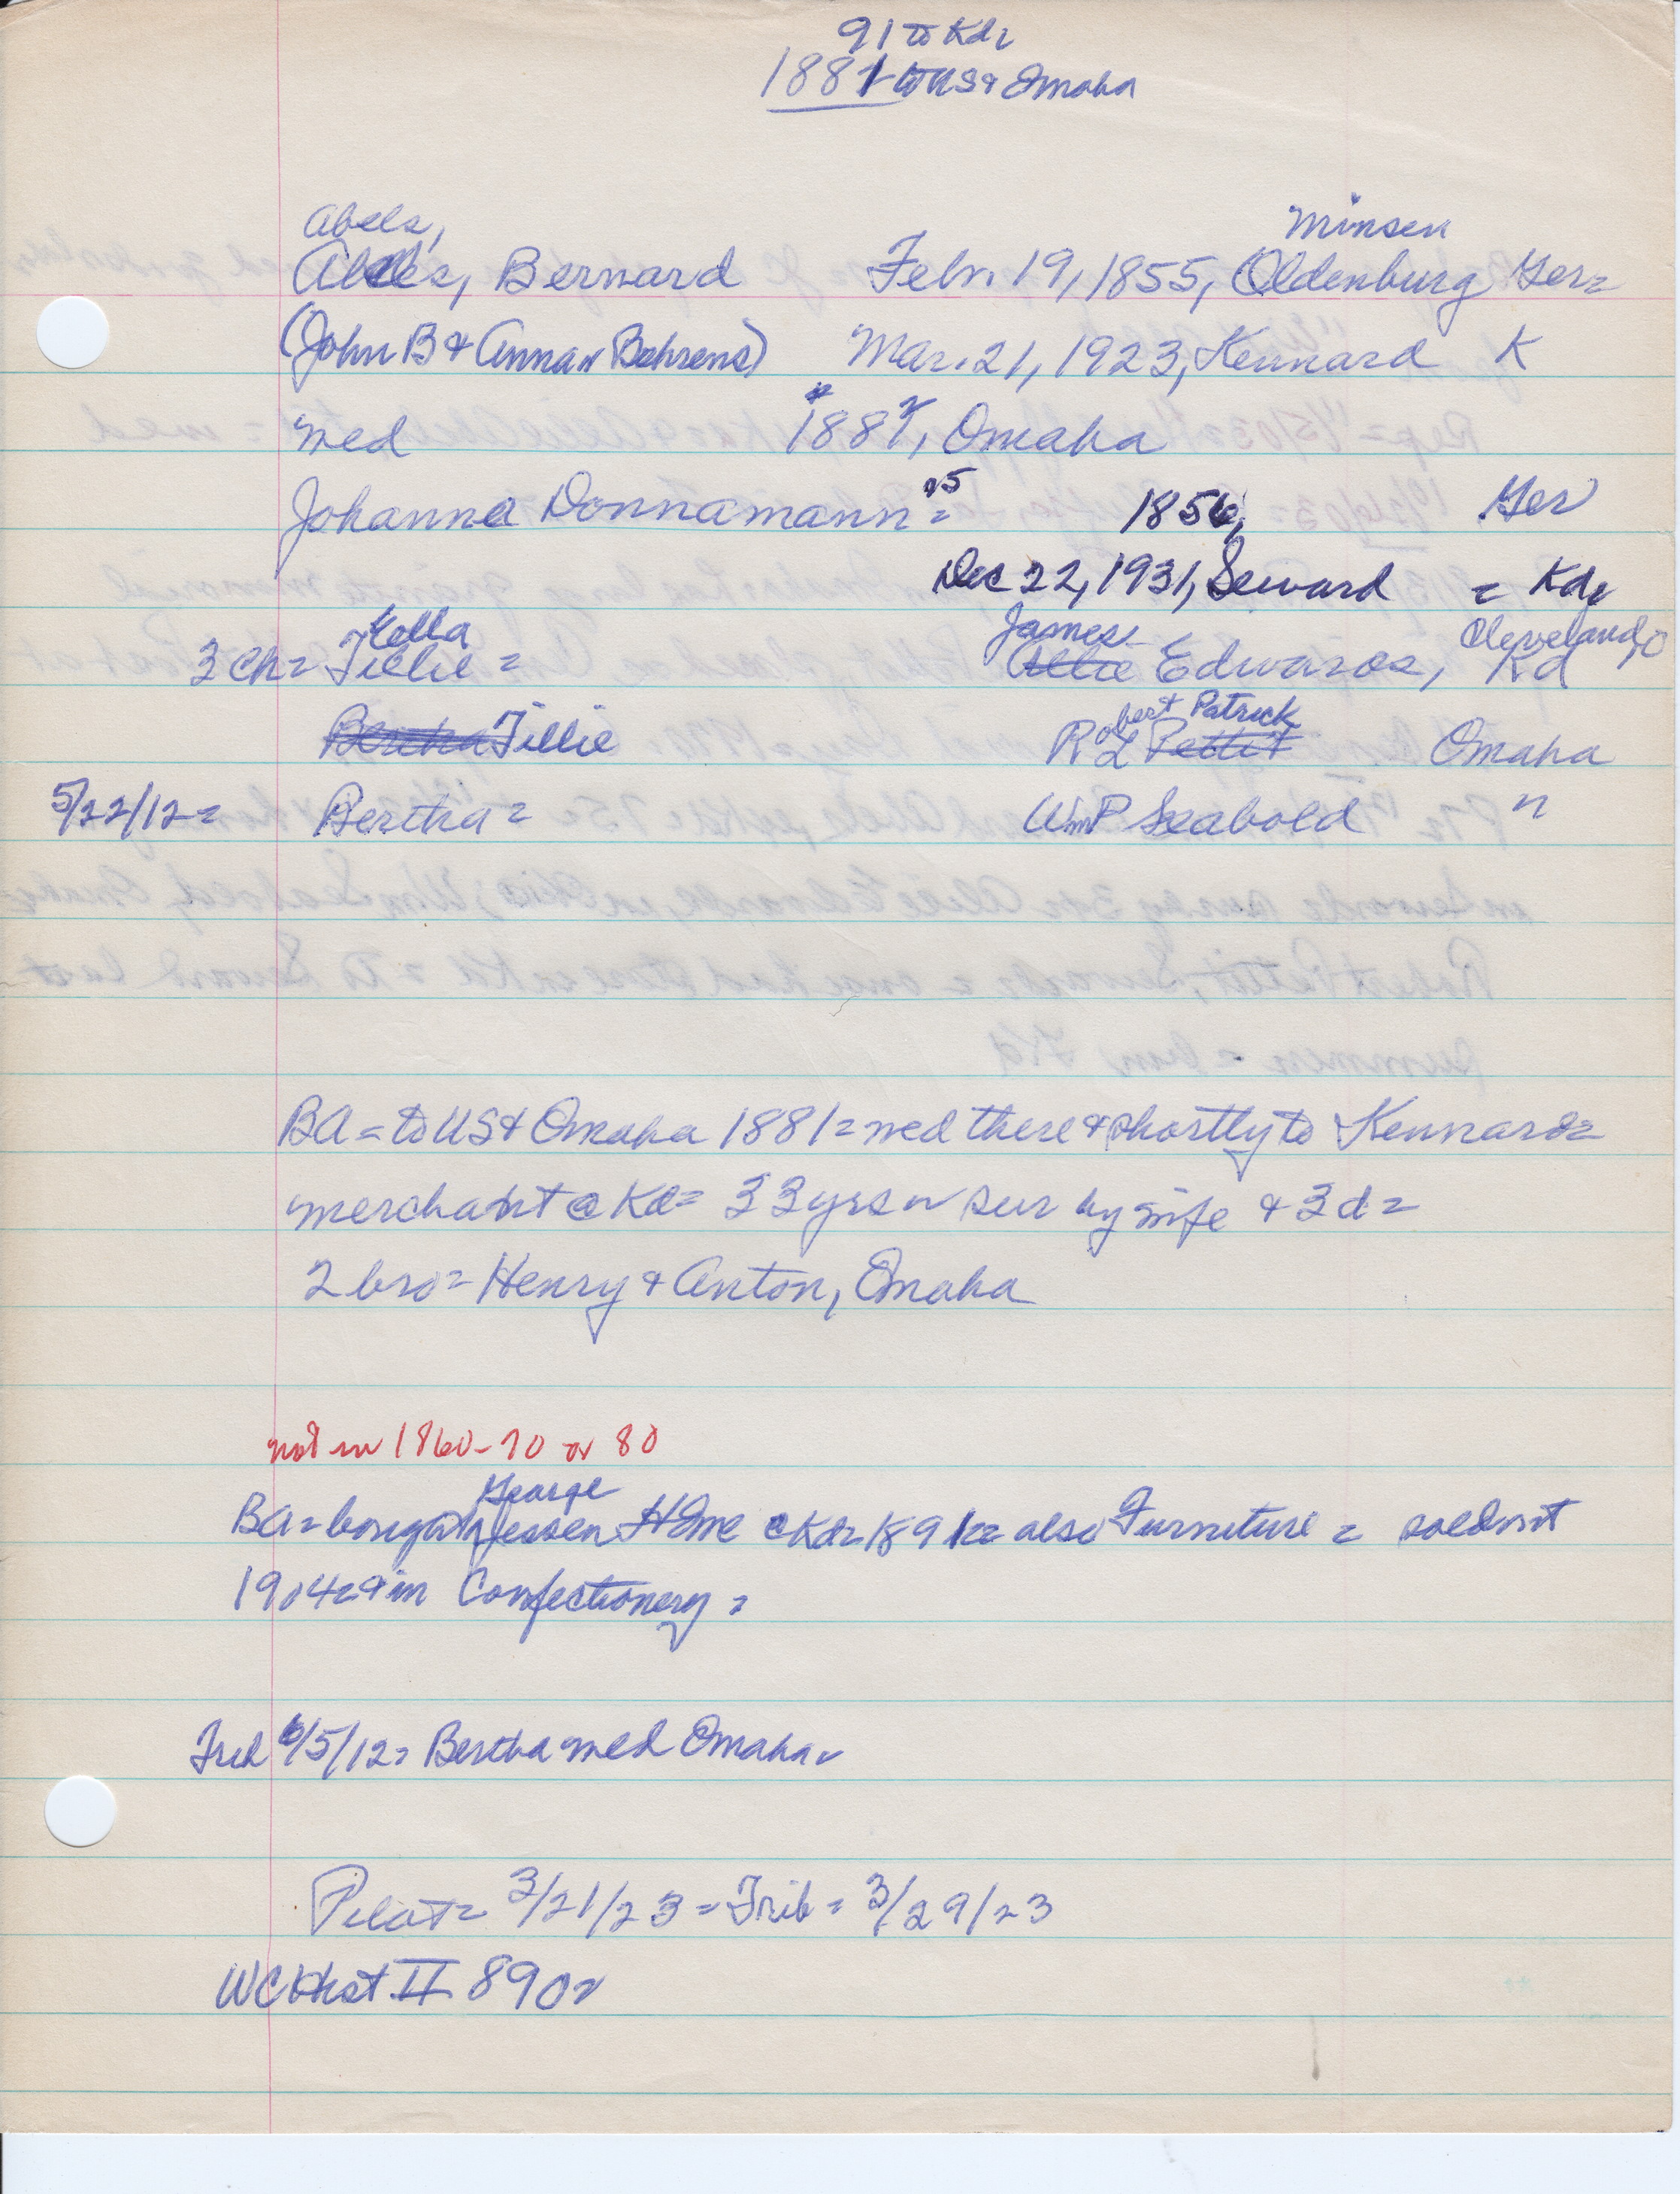 91 to Kd =
1881 to US & Omaha
Abels,
Minsen
Abels, Bernard Febr. 19, 1855, Oldenburg Ger =
(John B & Anna Behrens) Mar. 21, 1923, Kennard K
med 1882, Omaha
Johanna Donnamann = 75 1856, Ger
Dec 22, 1931, Seward = Kd
Kella James Cleveland, O
3 ch = Tillie = Allie Edwards, Kd
Bertha Tillie Robert L Patrick Pettit Omaha
5/22/12 = Bertha = Wm P Seabold "
BA = to US & Omaha 1881 = med there & shortly to Kennard =
merchant @ Kd = 33 yrs = sur by wife & 3 d =
2 bro = Henry & Anton, Omaha
not in 1860 - 70 or 80
George
BA = bought Jessen Hdwe @ Kd = 1891 = also Furniture = sold out
1904 = & in Confectionery =
Trib 6/5/12 = Bertha med Omaha =
Pilot = 3/21/23 = Trib = 3/29/23
WC Hist II 890 =